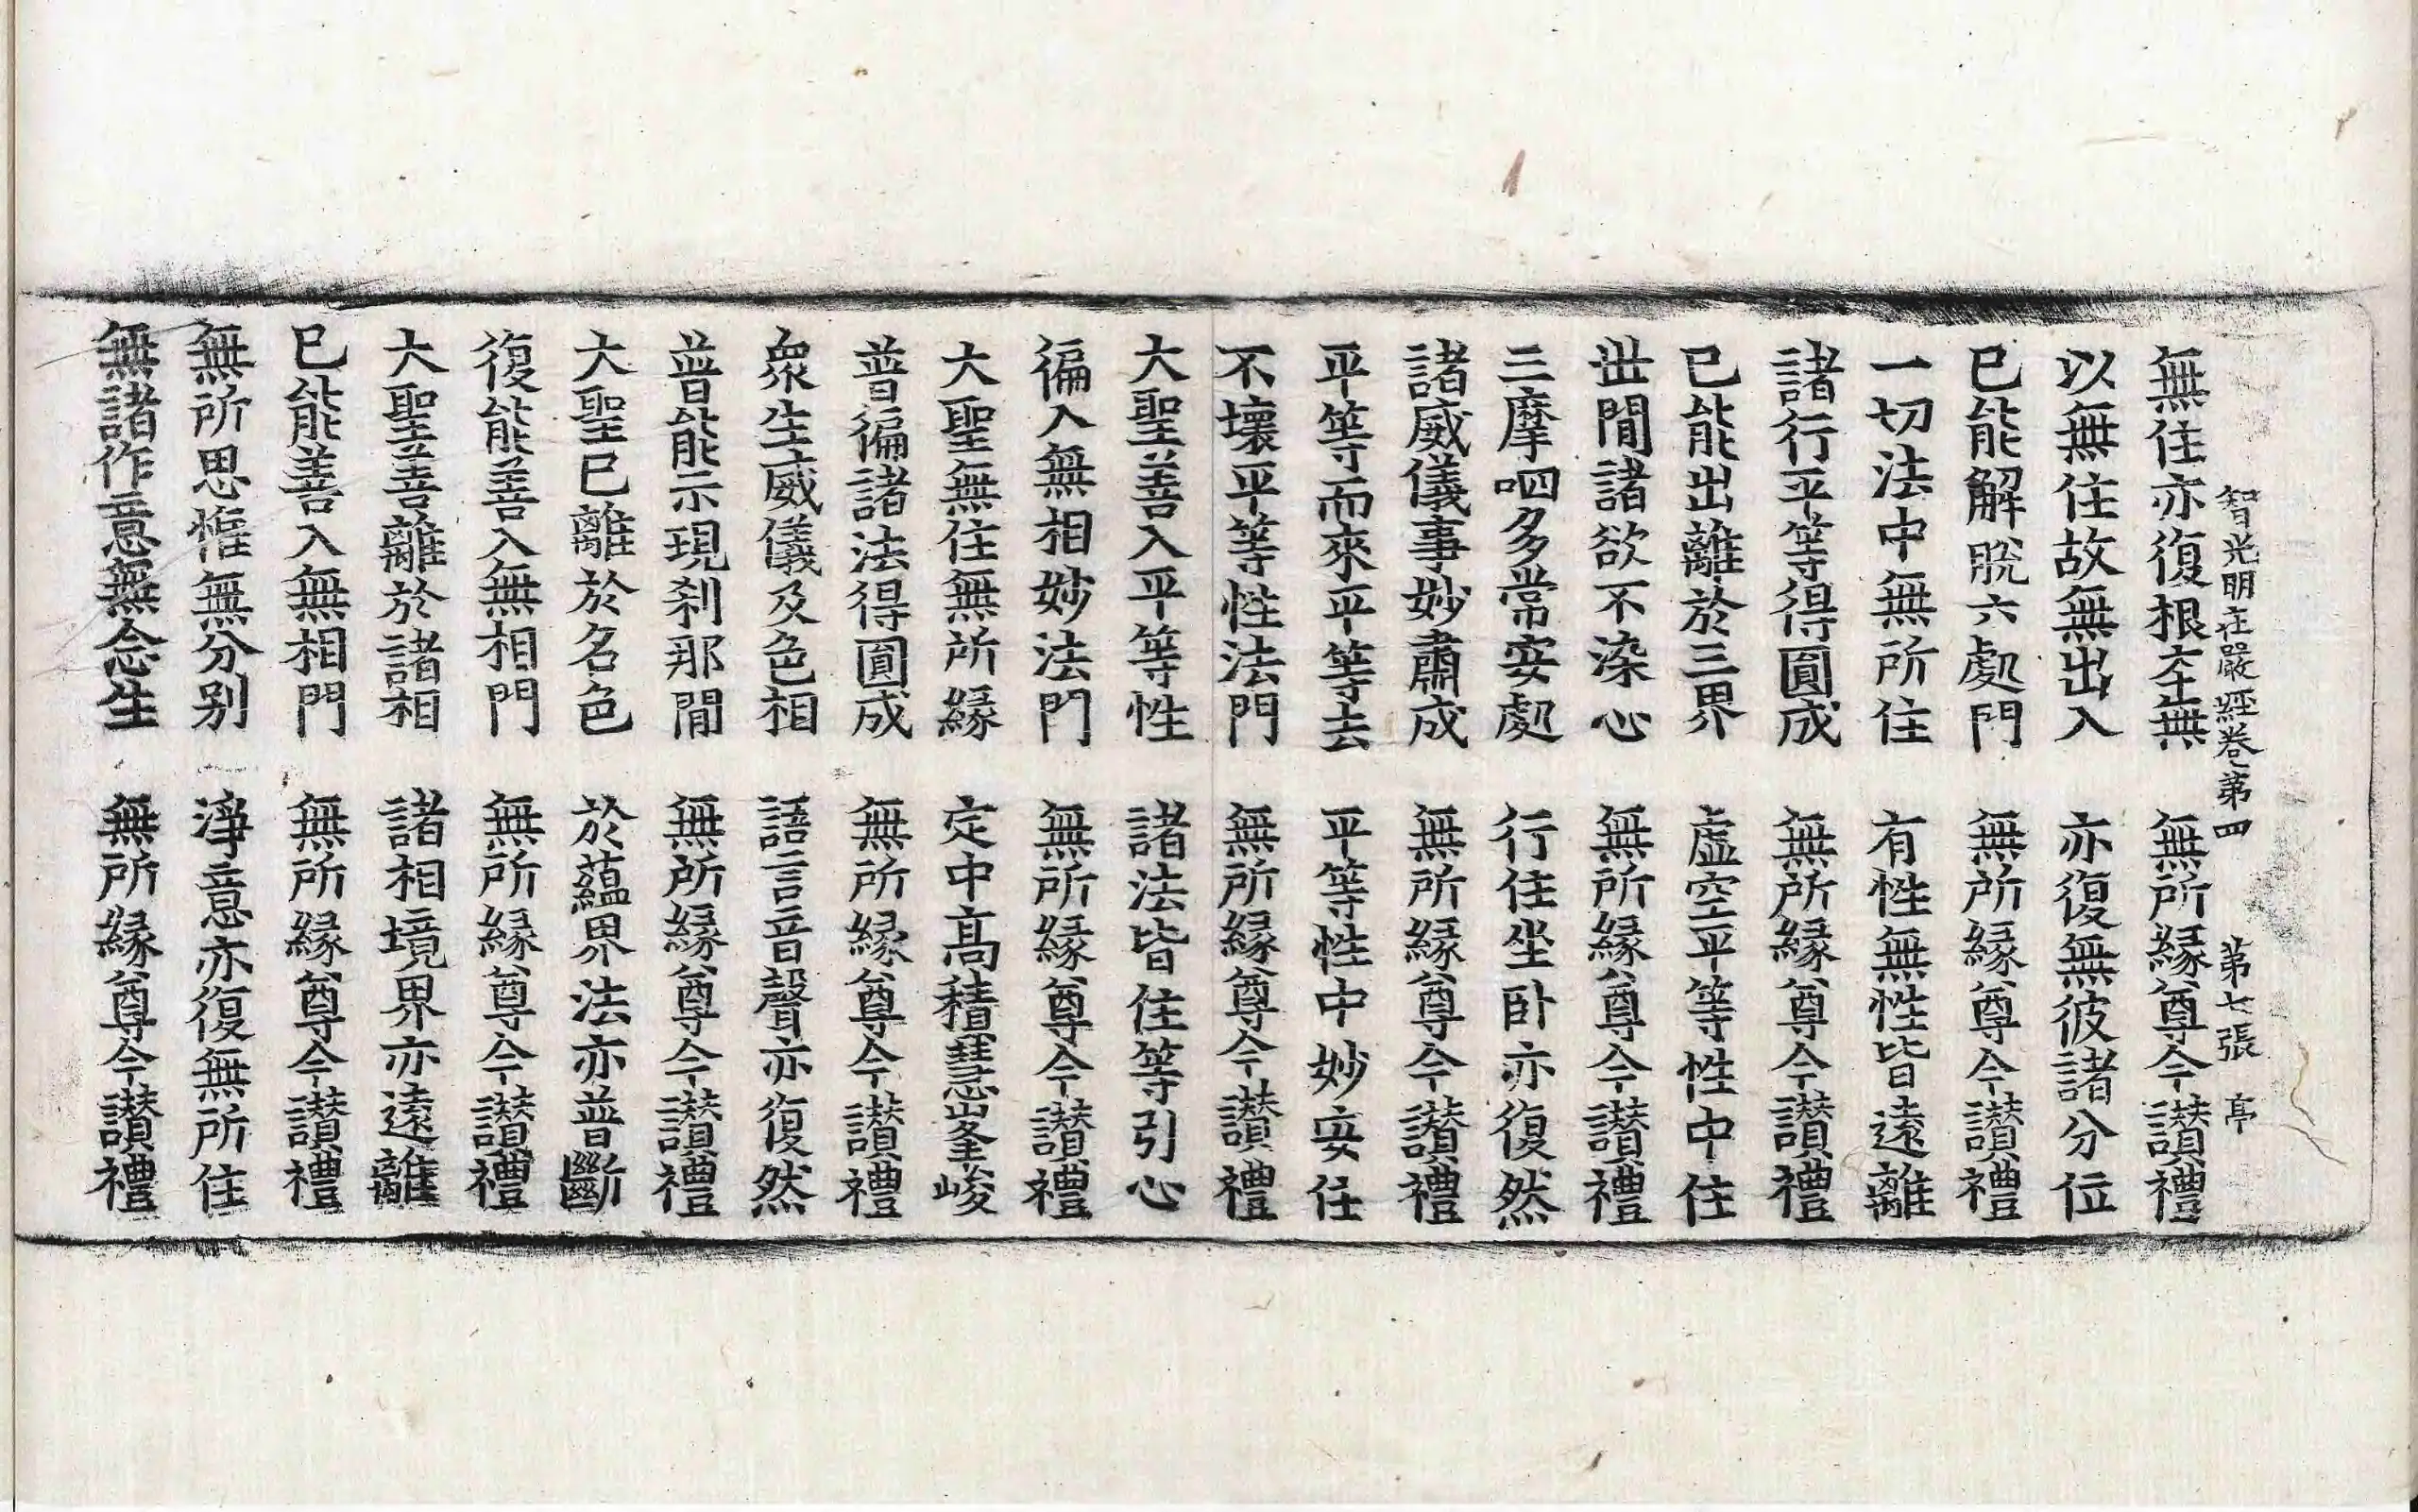 智光明在嚴經卷第四　第七張　亭
無住亦復根本無　無所緣尊今讚禮
以無住故無出入　亦復無彼諸分位
已能解脫六處門　無所緣尊今讚禮
一切法中無所住　有性無性皆遠離
諸行平等得圓成　無所緣尊今讚禮
已能出離於三界　虛空平等性中住
世間諸欲不染心　無所緣尊今讚禮
三摩呬多常安處　行住坐臥亦復然
諸威儀事妙肅成　無所緣尊今讚禮
平等而來平等去　平等性中妙安住
不壞平等性法門　無所緣尊今讚禮
大聖善入平等性　諸法皆住等引心
徧入無相妙法門　無所緣尊今讚禮
大聖無住無所緣　定中高積慧峯峻
普徧諸法得圓成　無所緣尊今讚禮
眾生威儀及色相　語言音聲亦復然
普能示現剎那間　無所緣尊今讚禮
大聖已離於名色　於蘊界法亦普斷
復能善入無相門　無所緣尊今讚禮
大聖善離於諸相　諸相境界亦遠離
已能善入無相門　無所緣尊今讚禮
無所思惟無分別　淨意亦復無所住
無諸作意無念生　無所緣尊今讚禮